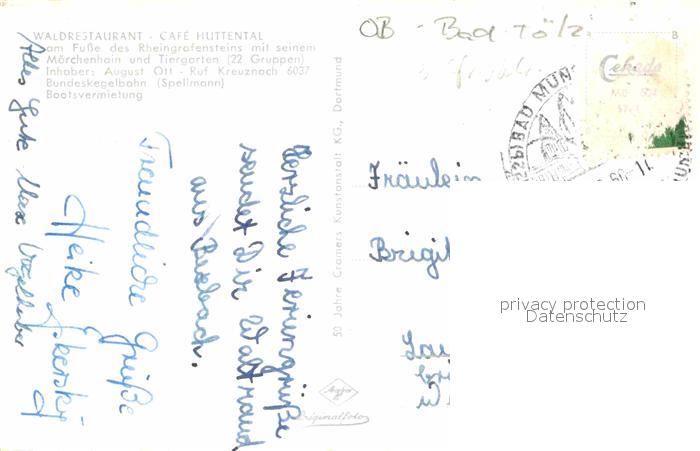 WALDRESTAURANT - CAFÉ HUTTENTAL
am Fuße des Rheingrafensteins mit seinem
Märchenhain und Tiergarten (22 Gruppen)
Inhaber: August Ott - Ruf Kreuznach 6037
Bundeskegelbahn (Spellmann)
Bootsvermietung
Alles Gute Max
Freundliche Grüße
Heike
Herzliche Feriengrüße
sendet Dir Waltraud
aus
50 Jahre Cramers Kunstanstalt KG., Dortmund
Agfa
Originalfoto
OB - Bad Tölz
B
Cekade
BAD MÜN
Fräulein
Brigit
privacy protection
Datenschutz